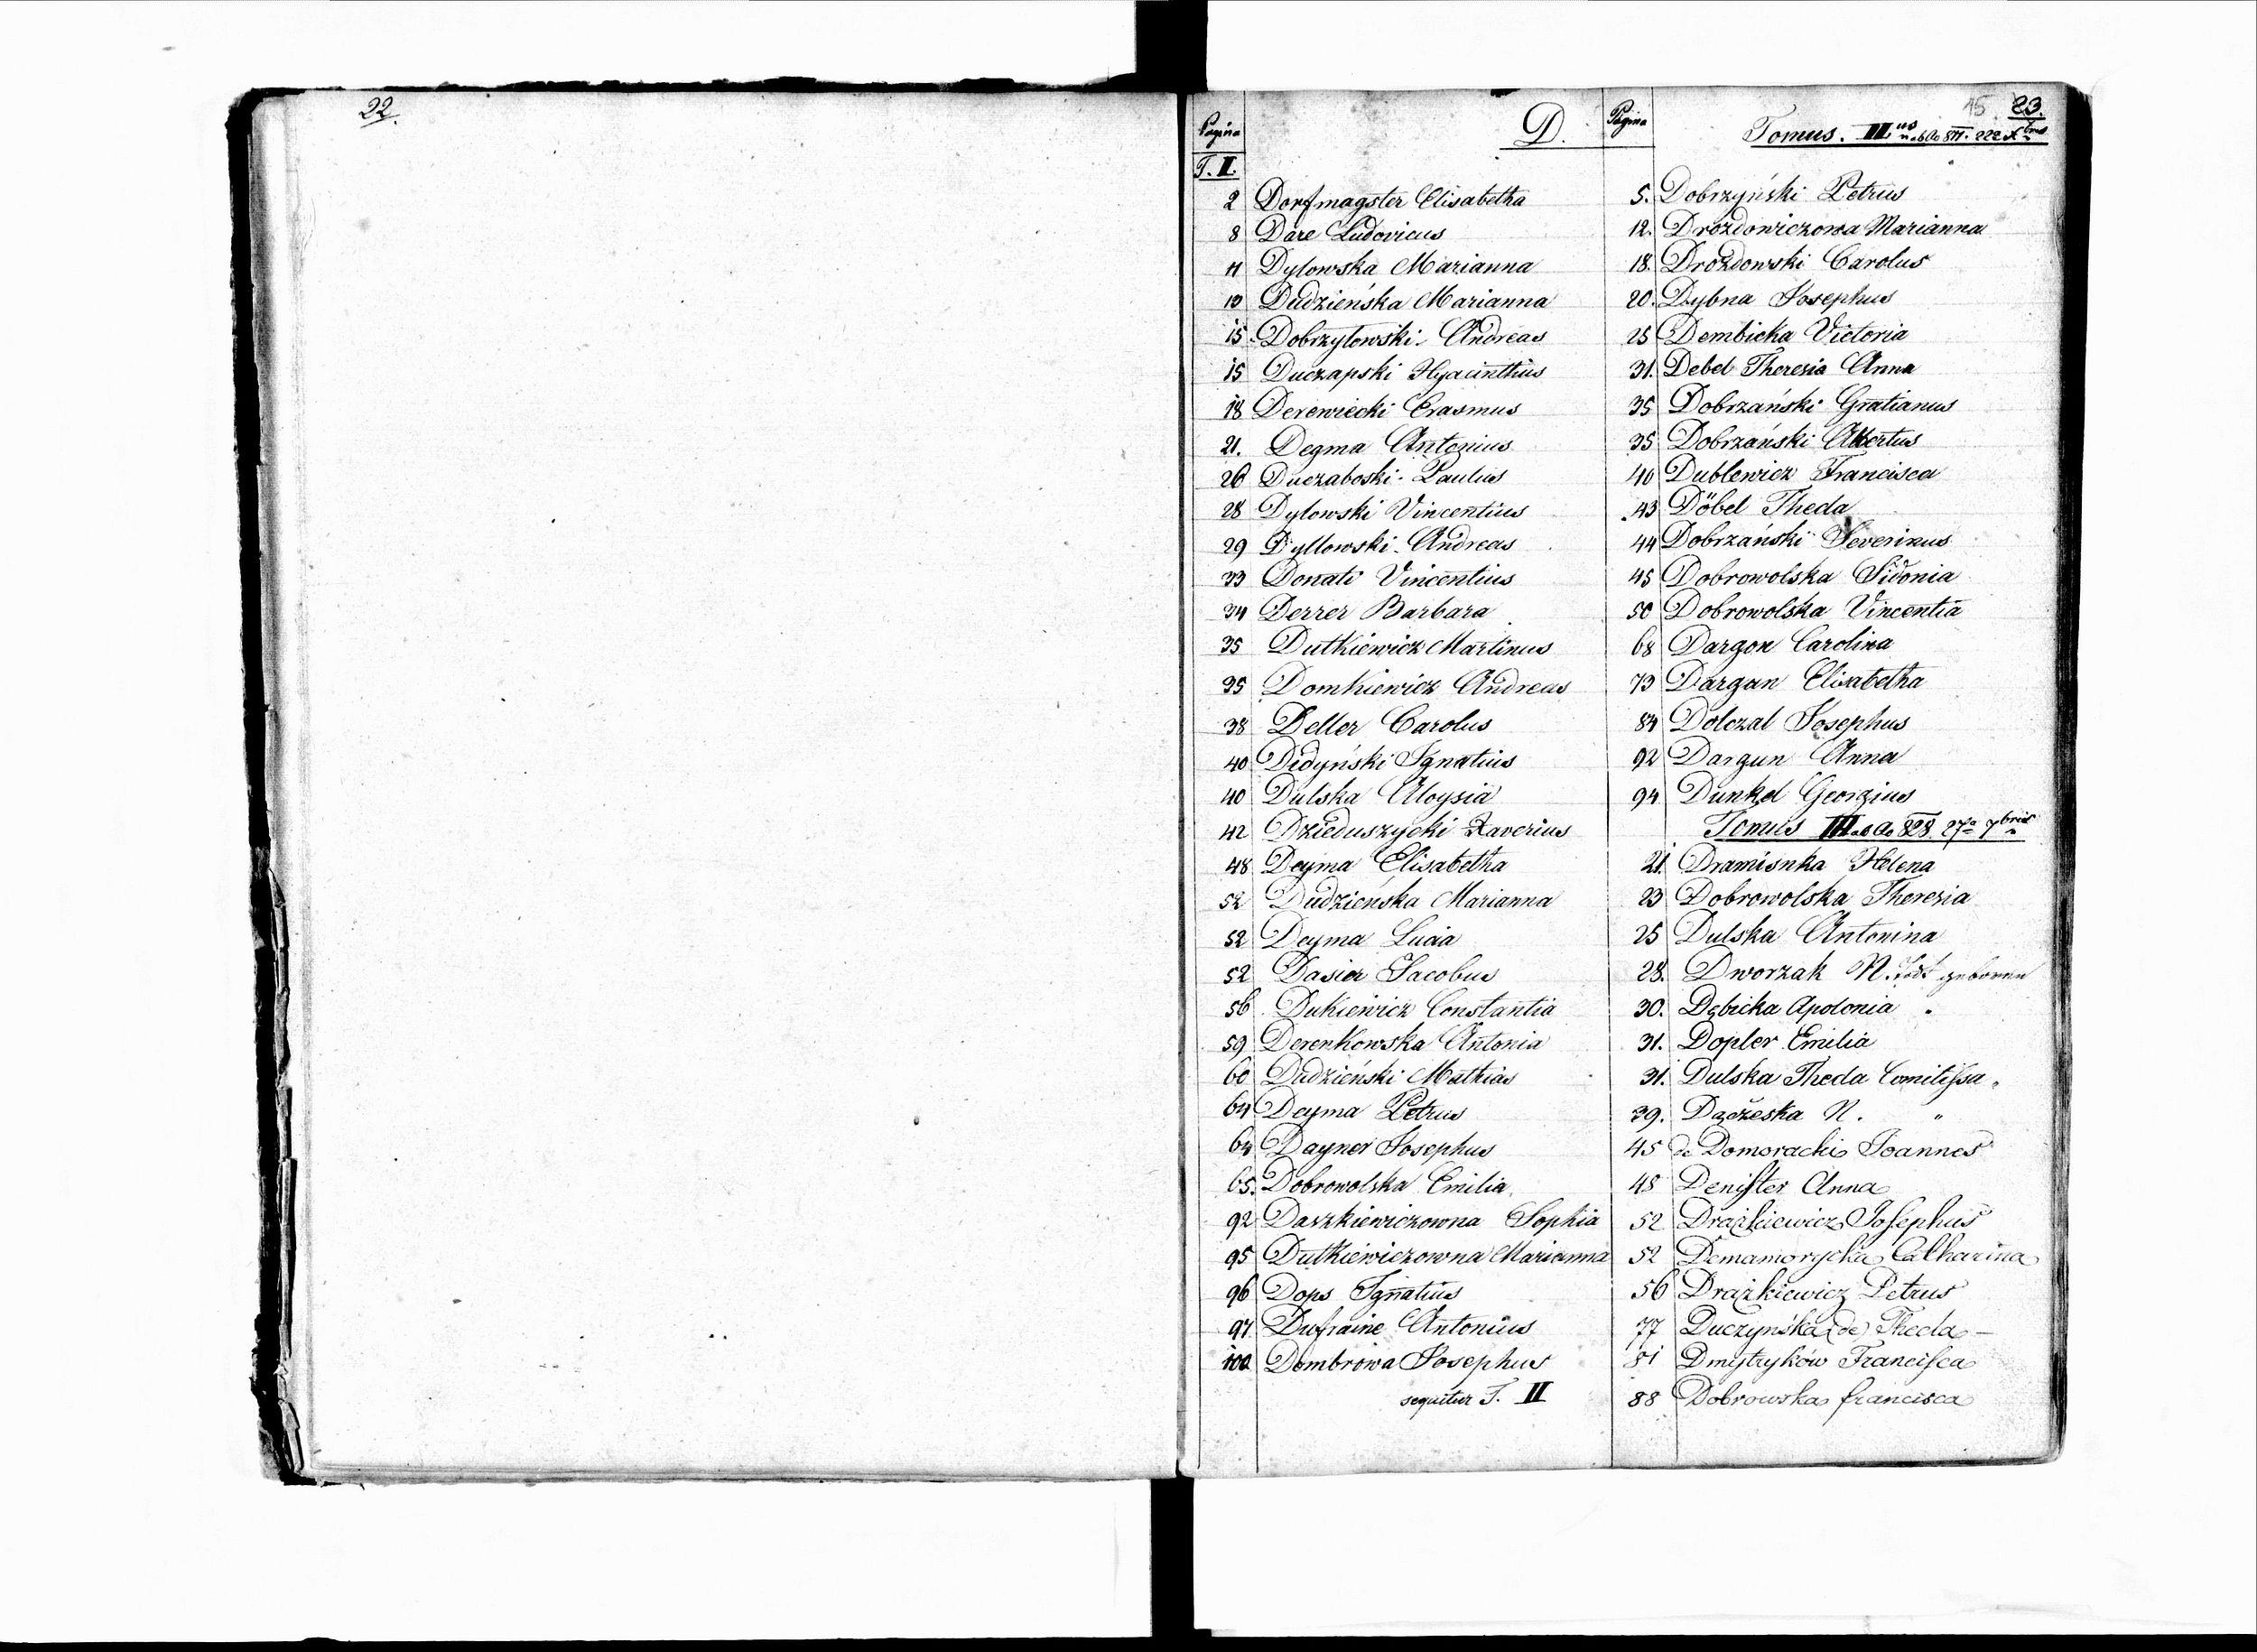 22.
Pagina
D.
T. I.
2 Dorfmagster Elisabetha
8 Dare Ludovicus
11 Dylowska Marianna
13 Dudzieńska Marianna
15 Dobrzytowski Andreas
15 Duczapski Hyacinthus
18 Derewiecki Erasmus
21. Degma Antonius
26 Duczaboski Paulus
28 Dylowski Vincentius
29 Dyllowski Andreas
33 Donati Vincentius
34 Derrer Barbara
35 Dutkiewicz Martinus
35 Domkiewicz Andreas
38 Deller Carolus
40 Didyński Ignatius
40 Dulska Aloysia
42 Dzieduszycki Xaverius
48 Deyma Elisabetha
52 Dudzieńska Marianna
52 Deyma Lucia
52 Dasier Jacobus
56 Dukiewicz Constantia
59 Derenkowska Antonia
60 Dudzieński Mathias
64 Deyma Petrus
64 Dayner Josephus
65. Dobrowolska Emilia
92 Daszkiewiczowna Sophia
95 Dutkiewiczowna Marianna
96 Dops Ignatius
97 Dufraine Antonius
100 Dombrowa Josephus
sequitur T. II
Pagina
15 23.
Tomus. II us
5. Dobrzyński Petrus
12. Drozdowiczowa Marianna
18. Drozdowski Carolus
20. Dybna Josephus
25 Dembicka Victoria
31. Debel Theresia Anna
35 Dobrzański Gratianus
35 Dobrzański Albertus
40 Dublewicz Francisca
43 Döbel Theda
44 Dobrzański Severinus
45 Dobrowolska Sidonia
50 Dobrowolska Vincentia
68 Dargon Carolina
73 Dargun Elisabetha
84 Dolezal Josephus
92 Dargun Anna
94 Dunkel Georgius
Tomus III ab Ao 828 27a 7bris
21. Dramisnka Helena
23 Dobrowolska Theresia
25 Dulska Antonina
28. Dworzak N. todt geboren
30. Dębicka Apolonia
31. Dopler Emilia
31. Dulska Theda Comitissa
39. Dążeska N. "
45 de Domoracki Joannes
48 Denister Anna
52 Drążkiewicz Josephus
52 Demamorycka Catharina
56 Drążkiewicz Petrus
77 Duczyńska (de) Thecla
81 Dmytryków Francisca
88 Dobrowska francisca